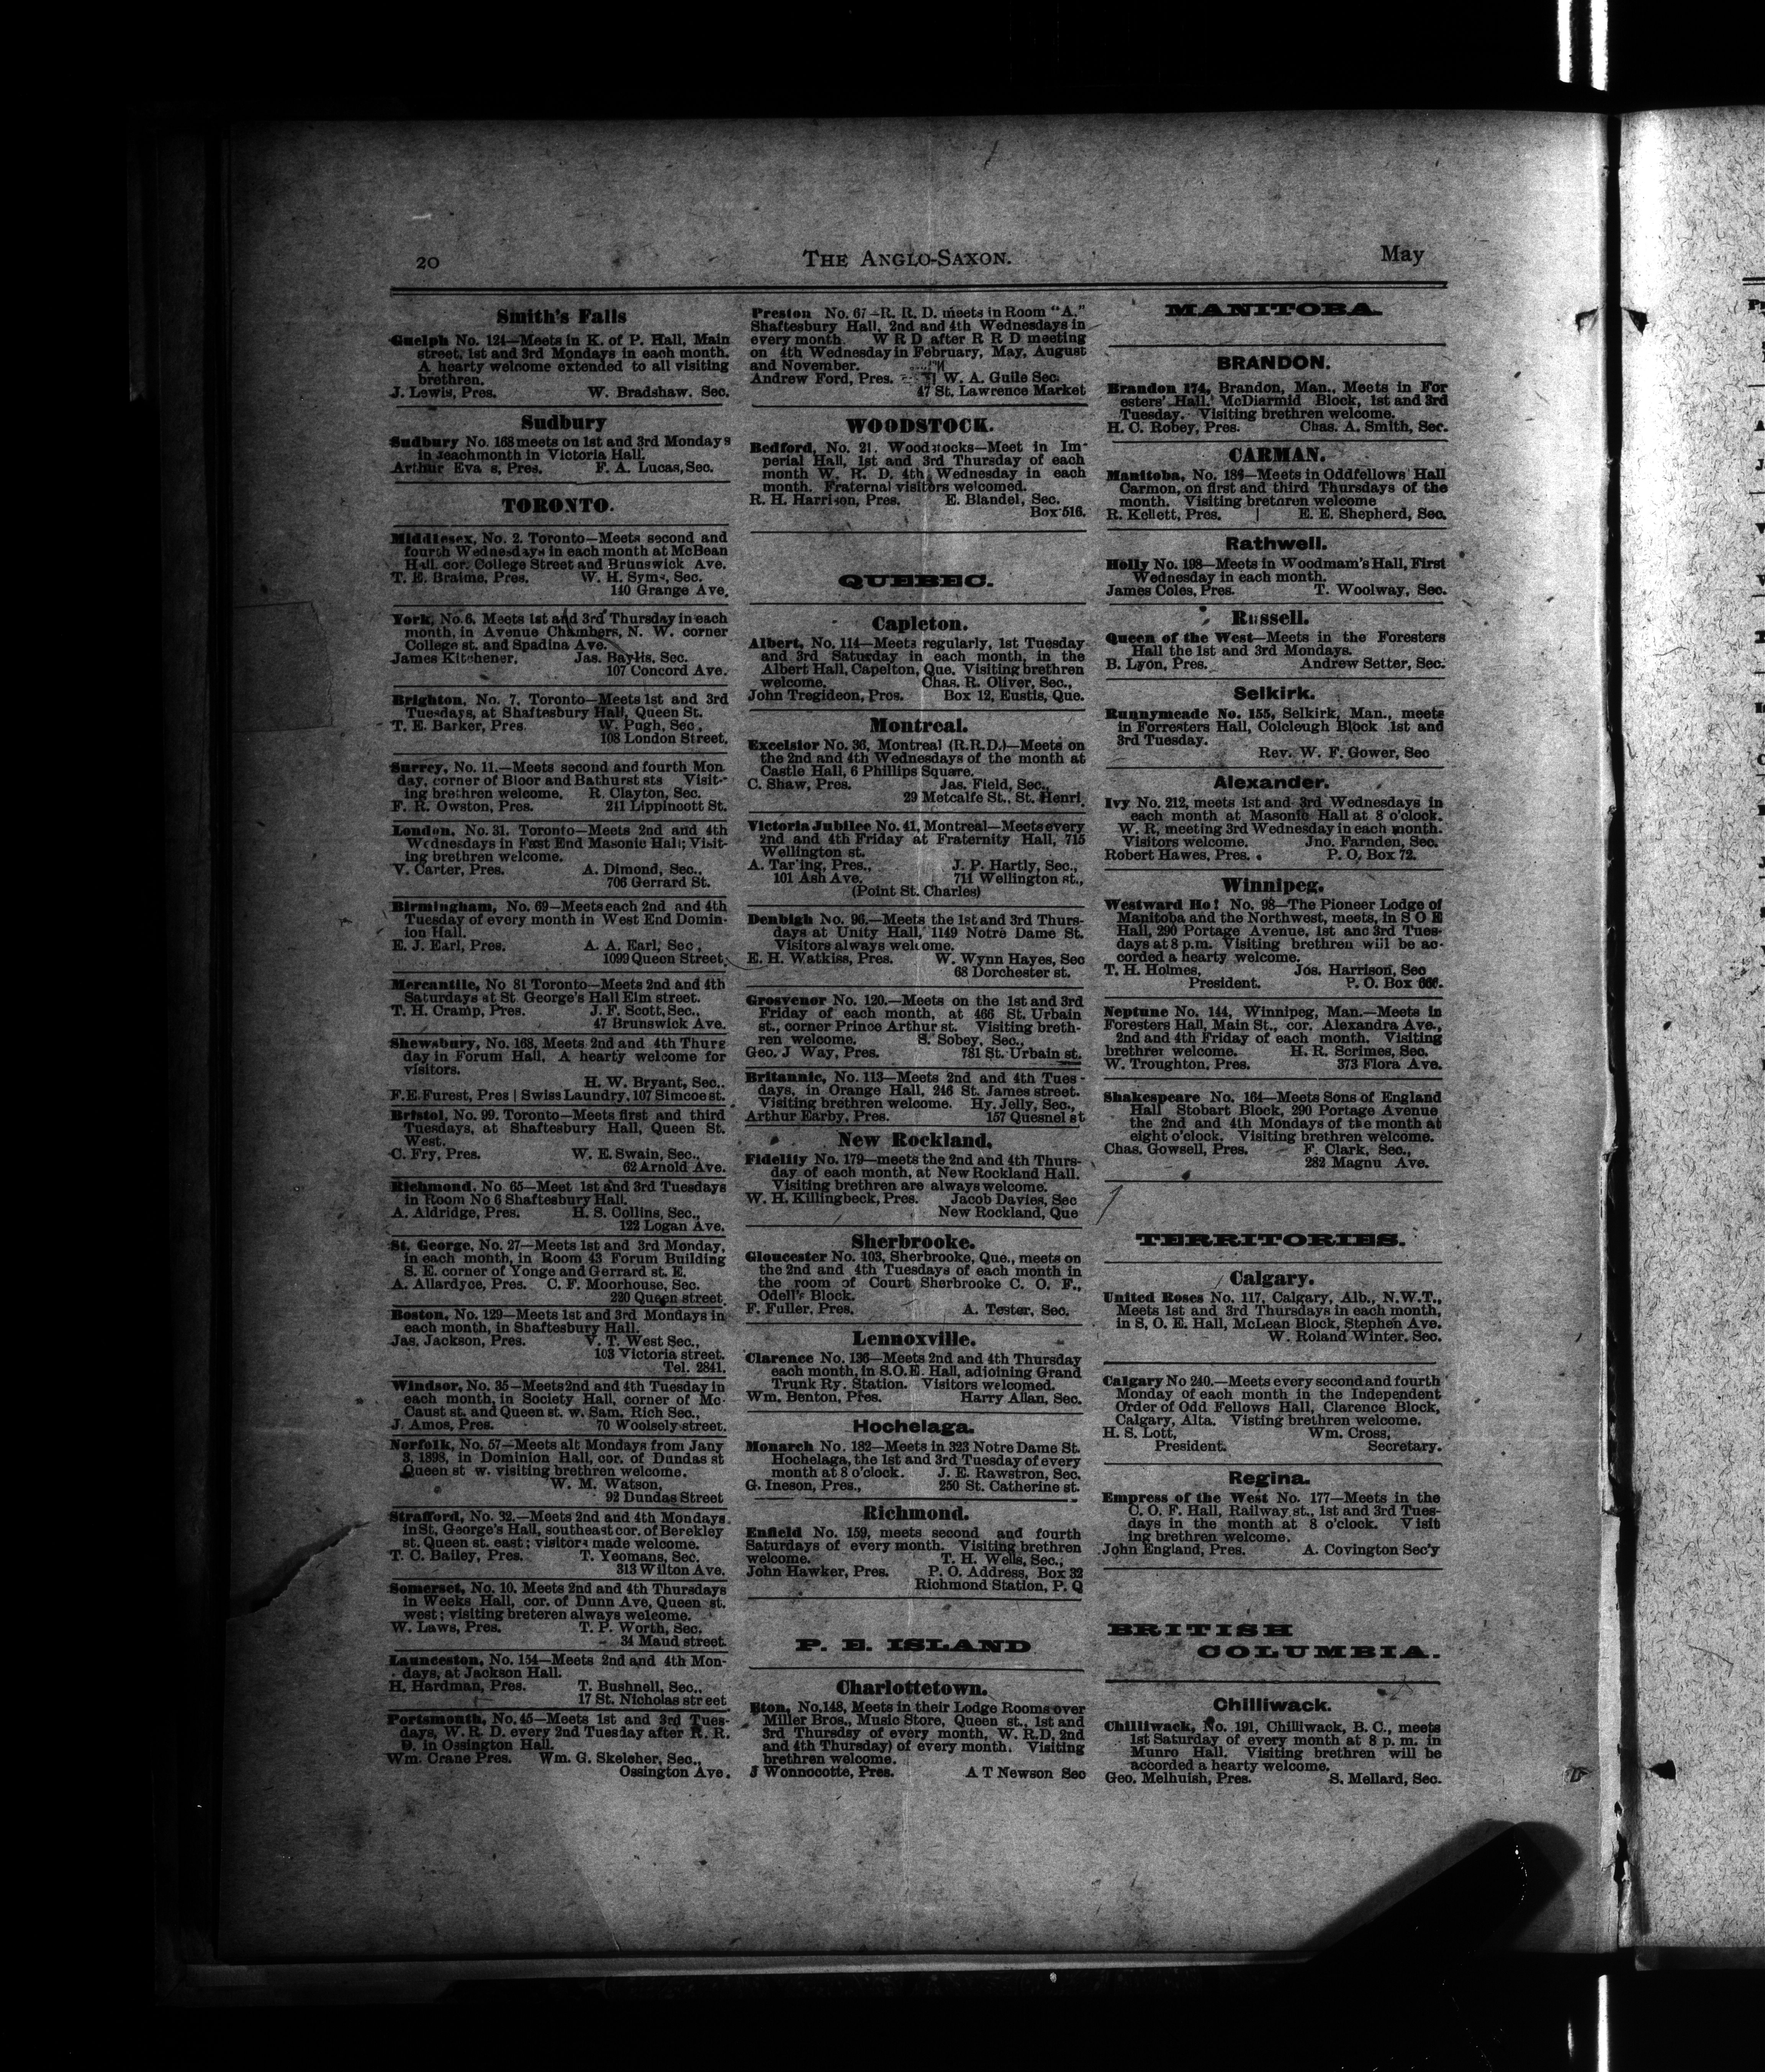 20
THE ANGLO-SAXON.
May
Smith's Falls
Guelph No. 124—Meets in K. of P. Hall, Main
street, 1st and 3rd Mondays in each month.
A hearty welcome extended to all visiting
brethren.
J. Lewis, Pres. W. Bradshaw. Sec.
Sudbury
Sudbury No. 168 meets on 1st and 3rd Mondays
in eachmonth in Victoria Hall.
Arthur Eva s, Pres. F. A. Lucas, Sec.
TORONTO.
Middlesex, No. 2. Toronto—Meets second and
fourth Wednesdays in each month at McBean
Hall. cor. College Street and Brunswick Ave.
T. E. Braime, Pres. W. H. Syms, Sec.
140 Grange Ave.
York, No. 6, Meets 1st and 3rd Thursday in each
month, in Avenue Chambers, N. W. corner
College st. and Spadina Ave.
James Kitchener. Jas. Baylis. Sec.
107 Concord Ave.
Brighton, No. 7, Toronto—Meets 1st and 3rd
Tuesdays, at Shaftesbury Hall, Queen St.
T. E. Barker, Pres. W. Pugh, Sec.
108 London Street.
Surrey, No. 11.—Meets second and fourth Mon
day, corner of Bloor and Bathurst sts Visit-
ing brethren welcome. R. Clayton, Sec.
F. R. Owston, Pres. 211 Lippincott St.
London, No. 31, Toronto—Meets 2nd and 4th
Wednesdays in East End Masonic Hall; Visit-
ing brethren welcome.
V. Carter, Pres. A. Dimond, Sec.,
706 Gerrard St.
Birmingham, No. 69—Meets each 2nd and 4th
Tuesday of every month in West End Domin-
ion Hall.
E. J. Earl, Pres. A. A. Earl, Sec.
1099 Queen Street.
Mercantile, No 81 Toronto—Meets 2nd and 4th
Saturdays at St. George's Hall Elm street.
T. H. Cramp, Pres. J. F. Scott, Sec.,
47 Brunswick Ave.
Shewsbury, No. 168, Meets 2nd and 4th Thurs
day in Forum Hall. A hearty welcome for
visitors.
H. W. Bryant, Sec..
F. E. Furest, Pres | Swiss Laundry, 107 Simcoe st.
Bristol, No. 99. Toronto—Meets first and third
Tuesdays, at Shaftesbury Hall, Queen St.
West.
C. Fry, Pres. W. E. Swain, Sec.,
62 Arnold Ave.
Richmond, No 65—Meet 1st and 3rd Tuesdays
in Room No 6 Shaftesbury Hall.
A. Aldridge, Pres. H. S. Collins, Sec.,
122 Logan Ave.
St. George, No. 27—Meets 1st and 3rd Monday,
in each month, in Room 43 Forum Building
S. E. corner of Yonge and Gerrard st. E.
A. Allardyce, Pres. C. F. Moorhouse, Sec.
220 Queen street.
Boston, No. 129—Meets 1st and 3rd Mondays in
each month, in Shaftesbury Hall.
Jas. Jackson, Pres. V. T. West Sec.,
103 Victoria street.
Tel. 2841.
Windsor, No. 35—Meets 2nd and 4th Tuesday in
each month, in Society Hall, corner of Mc-
Caust st. and Queen st. w. Sam. Rich Sec.,
J. Amos, Pres. 70 Woolsely street.
Norfolk, No. 57—Meets alt Mondays from Jany
3, 1898, in Dominion Hall, cor. of Dundas st
Queen st w. visiting brethren welcome.
W. M. Watson,
92 Dundas Street
Strafford, No. 32.—Meets 2nd and 4th Mondays
in St. George's Hall, southeast cor. of Berekley
st. Queen st. east; visitors made welcome.
T. C. Bailey, Pres. T. Yeomans, Sec.
313 Wilton Ave.
Somerset, No. 10. Meets 2nd and 4th Thursdays
in Weeks Hall, cor. of Dunn Ave, Queen st.
west; visiting breteren always welcome.
W. Laws, Pres. T. P. Worth, Sec.
34 Maud street.
Launceston, No. 154—Meets 2nd and 4th Mon-
days, at Jackson Hall.
H. Hardman, Pres. T. Bushnell, Sec..
17 St. Nicholas street
Portsmouth, No. 45—Meets 1st and 3rd Tues-
days, W. R. D. every 2nd Tuesday after R. R.
D. in Ossington Hall.
Wm. Crane Pres. Wm. G. Skelcher, Sec.,
Ossington Ave.
Preston No. 67—R. R. D. meets in Room "A."
Shaftesbury Hall, 2nd and 4th Wednesdays in
every month. W R D after R R D meeting
on 4th Wednesday in February, May, August
and November.
Andrew Ford, Pres. W. A. Guile Sec.
47 St. Lawrence Market
WOODSTOCK.
Bedford, No. 21. Woodstocks—Meet in Im-
perial Hall, 1st and 3rd Thursday of each
month W. R. D. 4th Wednesday in each
month. Fraternal visitors welcomed.
R. H. Harrison, Pres. E. Blandel, Sec.
Box 516.
QUEBEC.
Capleton.
Albert, No. 114—Meets regularly, 1st Tuesday
and 3rd Saturday in each month, in the
Albert Hall, Capelton, Que. Visiting brethren
welcome. Chas. R. Oliver, Sec.,
John Tregideon, Pros. Box 12, Eustis, Que.
Montreal.
Excelsior No. 36, Montreal (R.R.D.)—Meets on
the 2nd and 4th Wednesdays of the month at
Castle Hall, 6 Phillips Square.
C. Shaw, Pres. Jas. Field, Sec.,
29 Metcalfe St., St. Henri.
Victoria Jubilee No. 41, Montreal—Meets every
2nd and 4th Friday at Fraternity Hall, 715
Wellington st.
A. Tar'ing, Pres., J. P. Hartly, Sec.,
101 Ash Ave. 711 Wellington st.,
(Point St. Charles)
Denbigh No. 96.—Meets the 1st and 3rd Thurs-
days at Unity Hall, 1149 Notre Dame St.
Visitors always welcome.
E. H. Watkiss, Pres. W. Wynn Hayes, Sec
68 Dorchester st.
Grosvenor No. 120.—Meets on the 1st and 3rd
Friday of each month, at 466 St. Urbain
st., corner Prince Arthur st. Visiting breth-
ren welcome. S. Sobey, Sec.,
Geo. J Way, Pres. 781 St. Urbain st.
Britannic, No. 113—Meets 2nd and 4th Tues-
days, in Orange Hall, 246 St. James street.
Visiting brethren welcome. Hy. Jelly, Sec.,
Arthur Earby, Pres. 157 Quesnel st
New Rockland.
Fidelity No. 179—meets the 2nd and 4th Thurs-
day of each month, at New Rockland Hall.
Visiting brethren are always welcome.
W. H. Killingbeck, Pres. Jacob Davies, Sec
New Rockland, Que
Sherbrooke.
Gloucester No. 103, Sherbrooke, Que., meets on
the 2nd and 4th Tuesdays of each month in
the room of Court Sherbrooke C. O. F.,
Odell's Block.
F. Fuller, Pres. A. Tester, Sec.
Lennoxville.
Clarence No. 136—Meets 2nd and 4th Thursday
each month, in S.O.E. Hall, adjoining Grand
Trunk Ry. Station. Visitors welcomed.
Wm. Benton, Pres. Harry Allan, Sec.
Hochelaga.
Monarch No. 182—Meets in 323 Notre Dame St.
Hochelaga, the 1st and 3rd Tuesday of every
month at 8 o'clock. J. E. Rawstron, Sec.
G. Ineson, Pres., 250 St. Catherine st.
Richmond.
Enfield No. 159, meets second and fourth
Saturdays of every month. Visiting brethren
welcome. T. H. Wells, Sec.,
John Hawker, Pres. P. O. Address, Box 32
Richmond Station, P. Q
P. E. ISLAND
Charlottetown.
Eton, No.148, Meets in their Lodge Rooms over
Miller Bros., Music Store, Queen st., 1st and
3rd Thursday of every month, W. R.D. 2nd
and 4th Thursday) of every month. Visiting
brethren welcome.
J Wonnocotte, Pres. A T Newson Sec
MANITOBA.
BRANDON.
Brandon 174, Brandon, Man., Meets in For
esters' Hall, McDiarmid Block, 1st and 3rd
Tuesday. Visiting brethren welcome.
H. C. Robey, Pres. Chas. A. Smith, Sec.
CARMAN.
Manitoba, No. 184—Meets in Oddfellows' Hall
Carmon, on first and third Thursdays of the
month. Visiting bretnren welcome
R. Kellett, Pres. | E. E. Shepherd, Sec.
Rathwell.
Holly No. 198—Meets in Woodmam's Hall, First
Wednesday in each month.
James Coles, Pres. T. Woolway, Sec.
Russell.
Queen of the West—Meets in the Foresters
Hall the 1st and 3rd Mondays.
B. Lyon, Pres. Andrew Setter, Sec.
Selkirk.
Runnymeade No. 155, Selkirk, Man., meets
in Forresters Hall, Colcleugh Block 1st and
3rd Tuesday.
Rev. W. F. Gower, Sec
Alexander.
Ivy No. 212, meets 1st and 3rd Wednesdays in
each month at Masonic Hall at 8 o'clock.
W. R, meeting 3rd Wednesday in each month.
Visitors welcome. Jno. Farnden, Sec.
Robert Hawes, Pres. P. O. Box 72.
Winnipeg.
Westward Ho! No. 98—The Pioneer Lodge of
Manitoba and the Northwest, meets, in S O E
Hall, 290 Portage Avenue, 1st and 3rd Tues-
days at 8 p.m. Visiting brethren will be ac-
corded a hearty welcome.
T. H. Holmes, Jos. Harrison, Sec
President. P. O. Box 666.
Neptune No. 144, Winnipeg, Man.—Meets in
Foresters Hall, Main St., cor. Alexandra Ave.,
2nd and 4th Friday of each month. Visiting
brethrer welcome. H. R. Scrimes, Sec.
W. Troughton, Pres. 373 Flora Ave.
Shakespeare No. 164—Meets Sons of England
Hall Stobart Block, 290 Portage Avenue
the 2nd and 4th Mondays of the month at
eight o'clock. Visiting brethren welcome.
Chas. Gowsell, Pres. F. Clark, Sec.,
282 Magnu Ave.
TERRITORIES.
Calgary.
United Roses No. 117, Calgary, Alb., N.W.T.,
Meets 1st and 3rd Thursdays in each month,
in S. O. E. Hall, McLean Block, Stephen Ave.
W. Roland Winter. Sec.
Calgary No 240.—Meets every second and fourth
Monday of each month in the Independent
Order of Odd Fellows Hall, Clarence Block,
Calgary, Alta. Visting brethren welcome.
H. S. Lott, Wm. Cross,
President. Secretary.
Regina.
Empress of the West No. 177—Meets in the
C. O. F. Hall, Railway st., 1st and 3rd Tues-
days in the month at 8 o'clock. Visit
ing brethren welcome.
John England, Pres. A. Covington Sec'y
BRITISH
COLUMBIA.
Chilliwack.
Chilliwack, No. 191, Chilliwack, B. C., meets
1st Saturday of every month at 8 p. m. in
Munro Hall. Visiting brethren will be
accorded a hearty welcome.
Geo. Melhuish, Pres. S. Mellard, Sec.